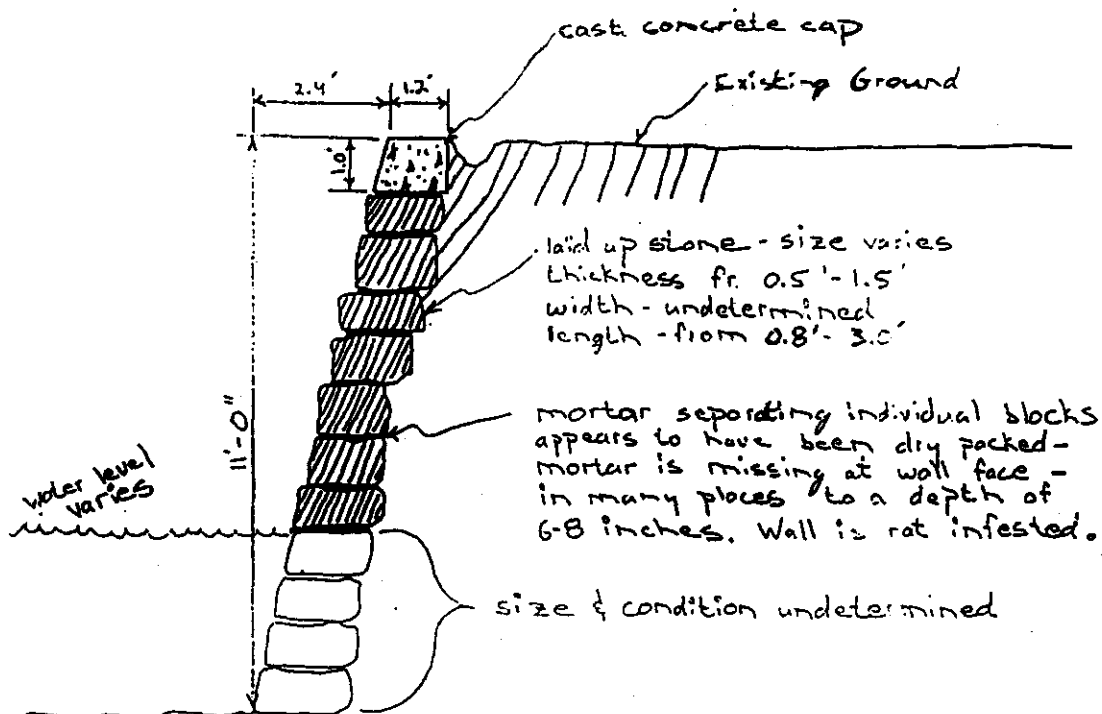 cast concrete cap
Existing Ground
2.4'
1.2'
1.0'
11'-0"
laid up stone - size varies
thickness fr. 0.5'-1.5'
width - undetermined
length - from 0.8'- 3.0'
mortar separating individual blocks
appears to have been dry packed -
mortar is missing at wall face -
in many places to a depth of
6-8 inches. Wall is rat infested.
water level
varies
size & condition undetermined